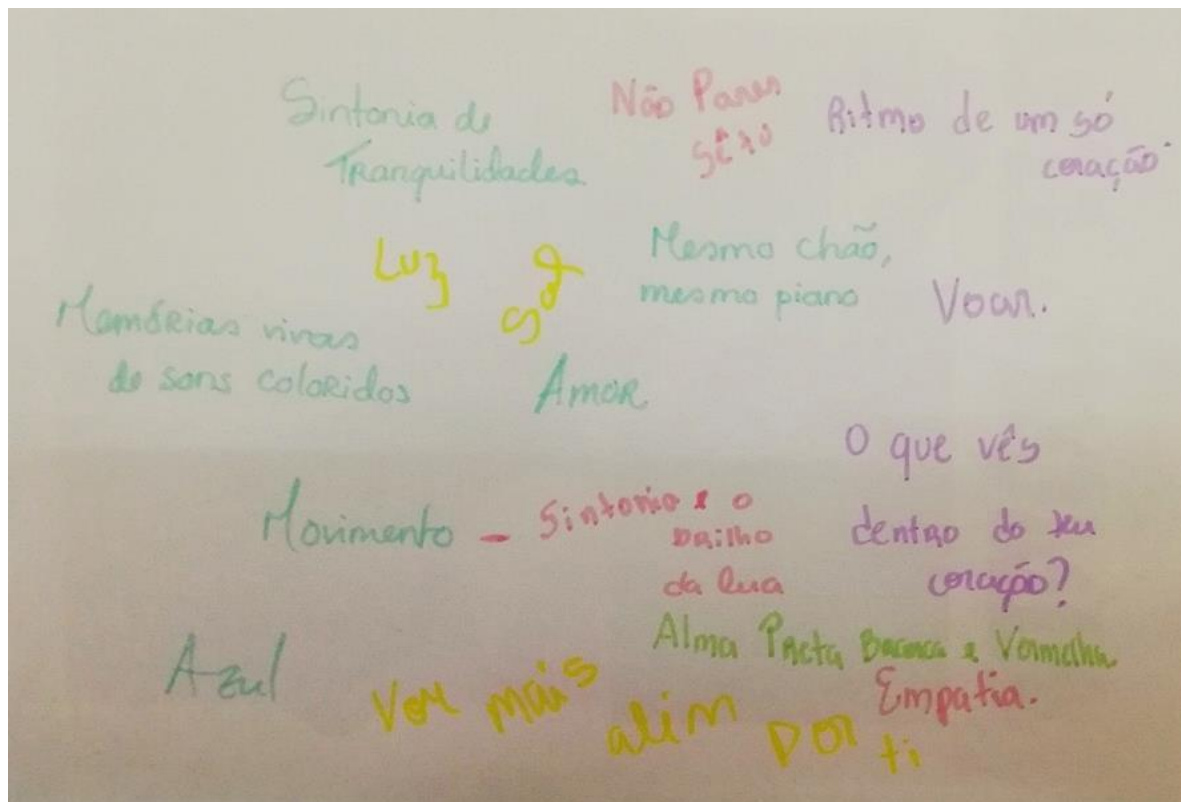 Sintonia de
Tranquilidades
Não Pares
Sê tu
Ritmo de um só
coração.
Luz
Sol
Mesmo chão,
mesmo piano
Voar.
Memórias vivas
de sons coloridos
Amor
O que vês
dentro do teu
coração?
Movimento – Sintonia e o
brilho
da lua
Alma Preta Branca e Vermelha
Azul
Ver mais
alim por
ti
Empatia.